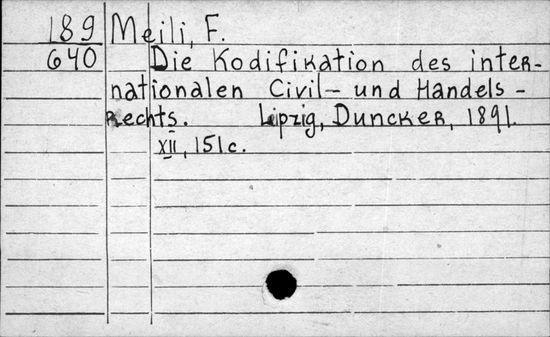 189 Meili, F.
640 Die Kodifikation des inter-
nationalen Civil- und Handels-
Rechts. Lipzig, Duncker, 1891.
XII, 151 c.